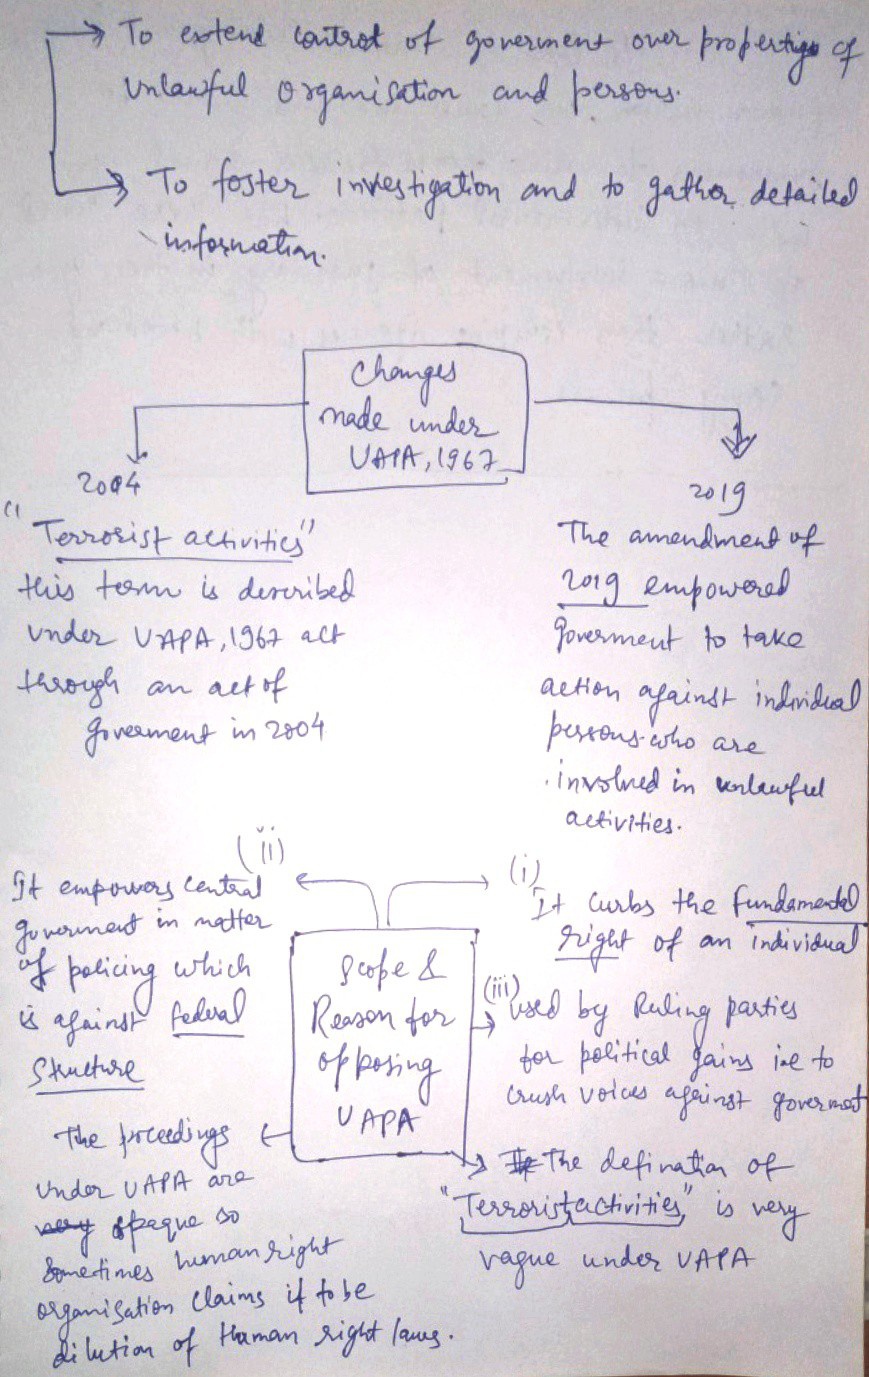 To extend control of goverment over properties of
unlawful organisation and persons.
To foster investigation and to gather detailed
information.
Changes
made under
UAPA, 1967
2004
"Terrorist activities"
this term is described
under UAPA, 1967 act
through an act of
goverment in 2004
2019
The amendment of
2019 empowered
goverment to take
action against individual
persons who are
involved in unlawful
activities.
Scope &
Reason for
opposing
UAPA
(i)
It curbs the fundamental
right of an individual
(ii)
It empowers central
goverment in matter
of policing which
is against federal
structure
(iii)
used by Ruling parties
for political gains i.e to
crush voices against goverment
The proceedings
under UAPA are
opaque so
sometimes human right
organisation claims it to be
dilution of Human right laws.
The defination of
"Terrorist activities" is very
vague under UAPA